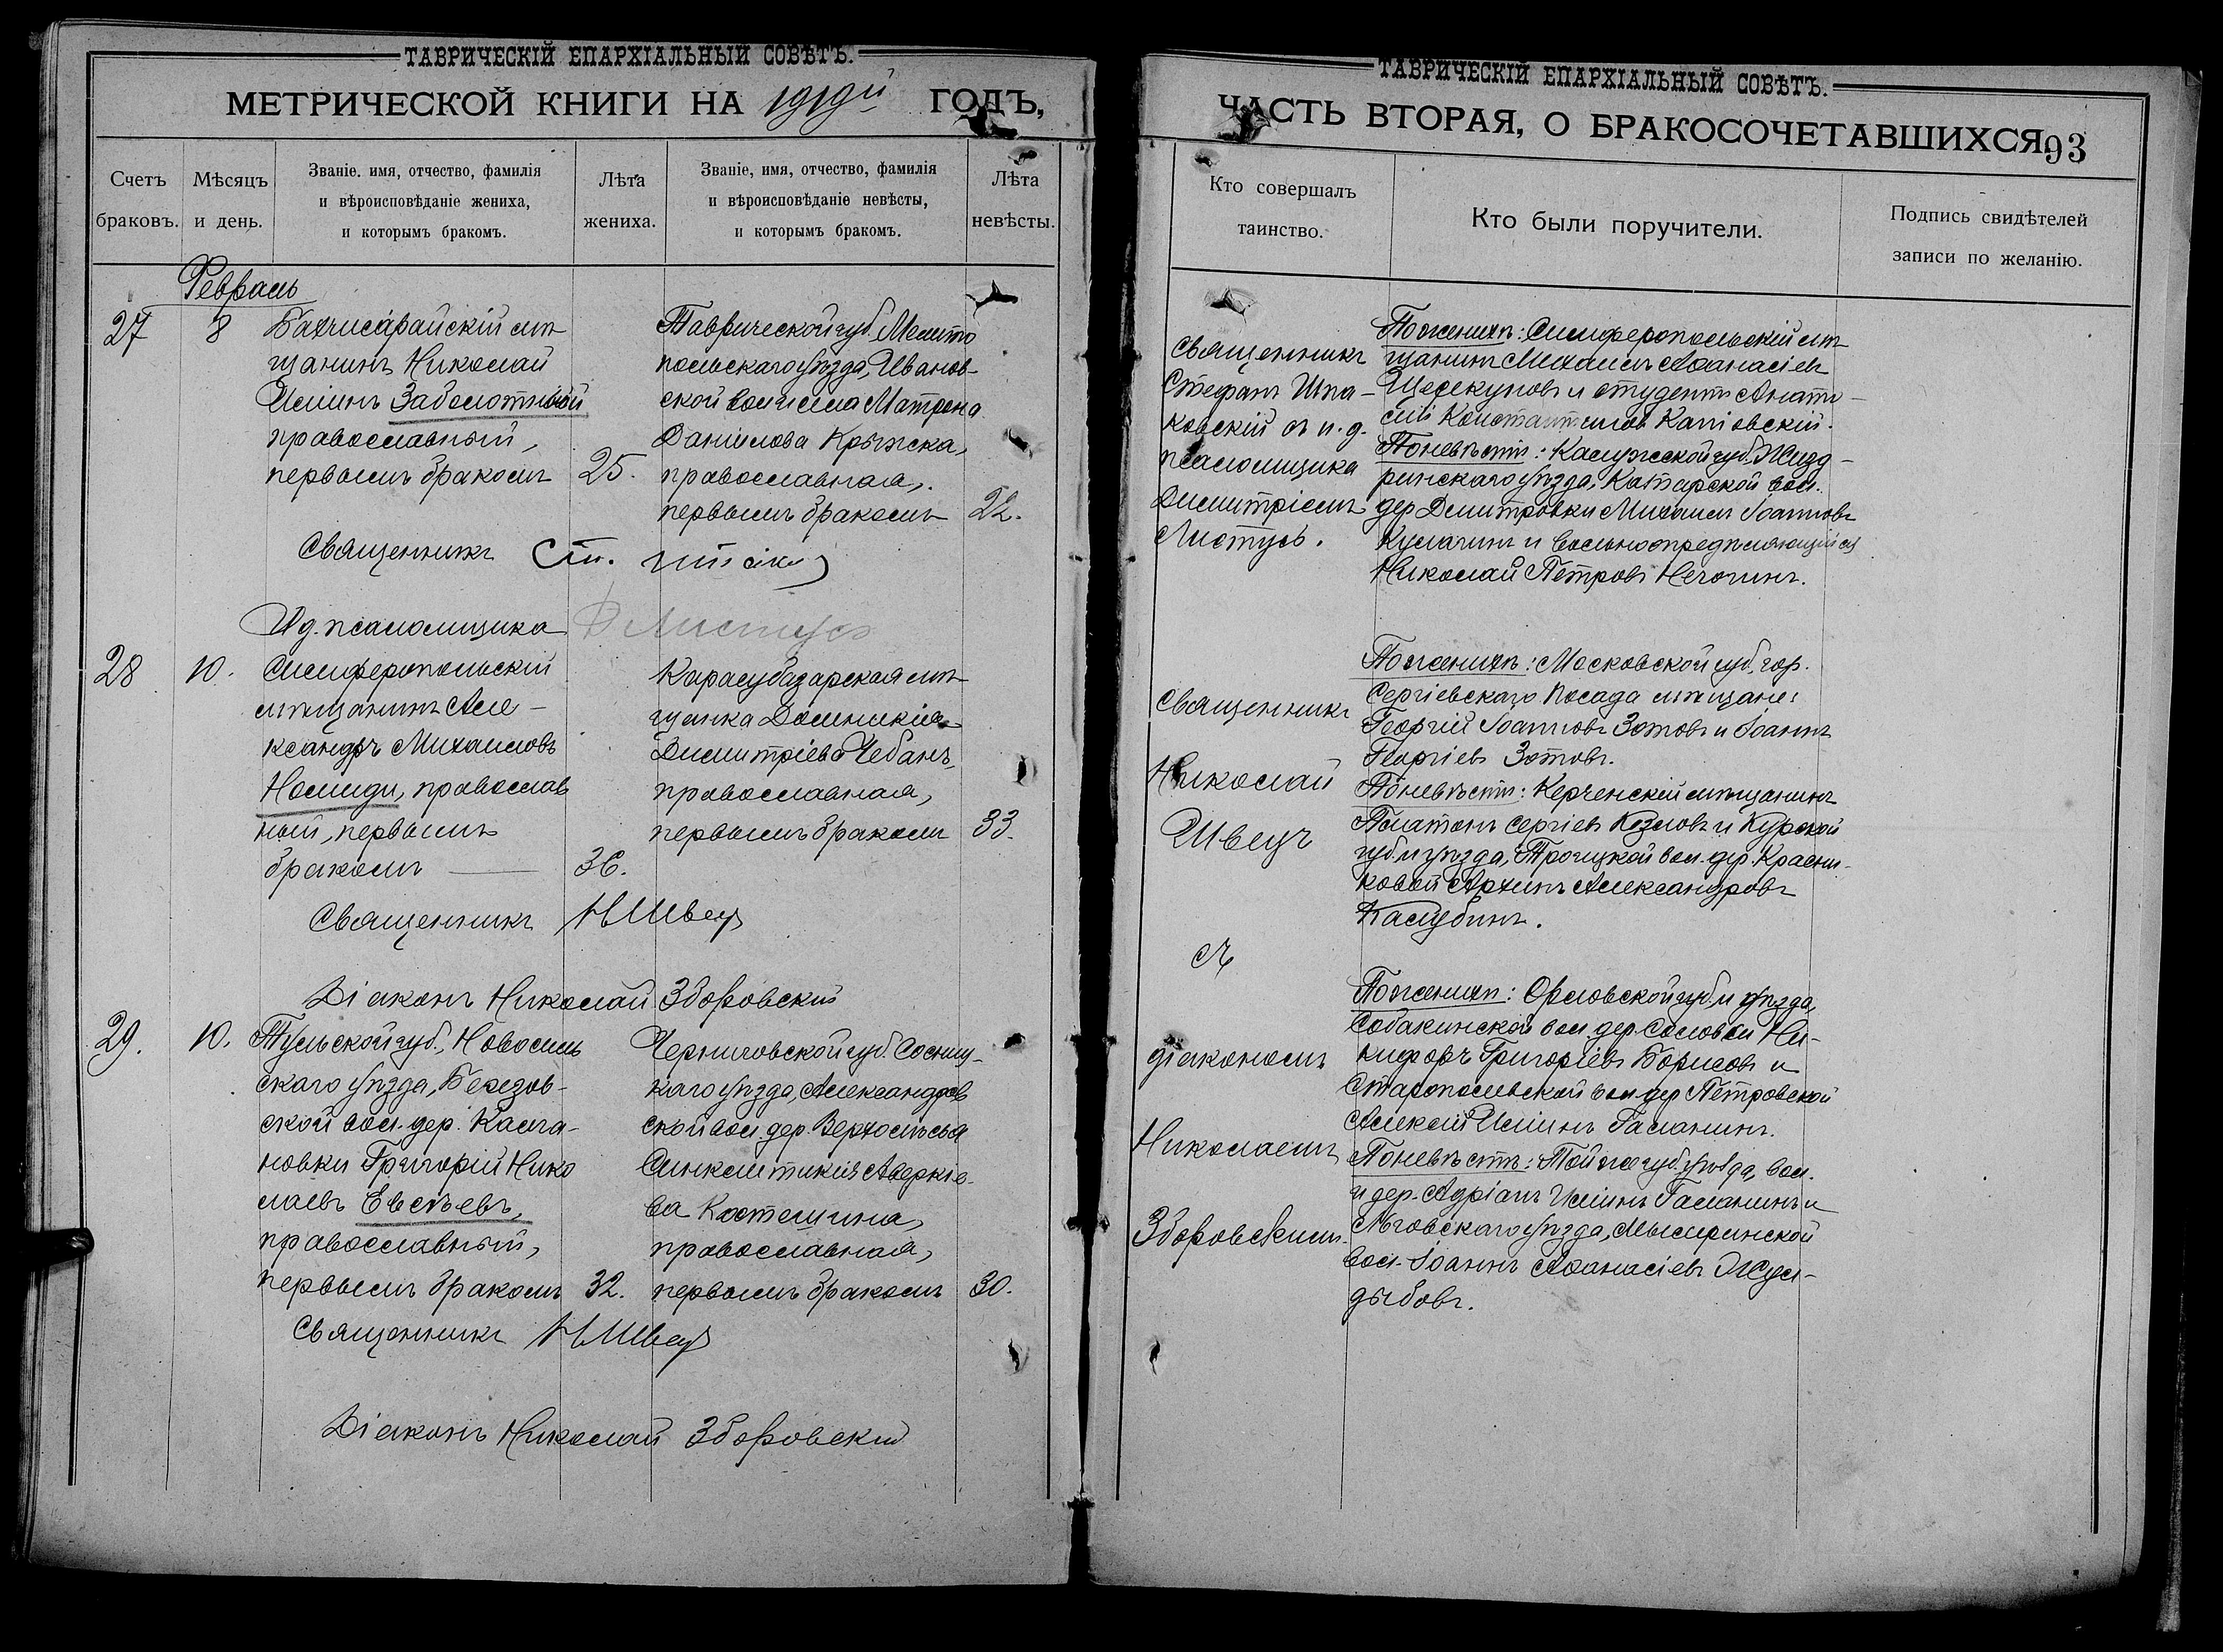 ТАВРИЧЕСКІЙ ЕПАРХІАЛЬНЫЙ СОВѢТЪ.
МЕТРИЧЕСКОЙ КНИГИ НА 1919й ГОДЪ,
Счетъ браковъ.
Мѣсяцъ и день.
Званіе, имя, отчество, фамилія
и вѣроисповѣданіе жениха,
и которымъ бракомъ.
Лѣта жениха.
Званіе, имя, отчество, фамилія
и вѣроисповѣданіе невѣсты,
и которымъ бракомъ.
Лѣта невѣсты.
Февраль
27
8
Бахчисарайскій мѣ-
щанинъ Николай
Иліинъ Заболотный
православный,
первымъ бракомъ
25.
Таврической губ. Мелито
польскаго уѣзда, Иванов-
ской вол. и села Матрона
Даніилова Крыжска,
православная,
первымъ бракомъ
22.
Священникъ Ст.
И д. псаломщика Д Листусъ
28
10.
Симферопольскій
мѣщанинъ Але-
ксандръ Михаиловъ
Номиди, православ
ный, первымъ
бракомъ
36.
Карасубазарская мѣ-
щанка Домникія
Димитріева Чебанъ,
православная,
первымъ бракомъ
33.
Священникъ Н Швец
Діаконъ Николай Зборовский
29.
10.
Тульской губ., Новосиль
скаго уѣзда, Березов-
ской вол. дер. Калга-
новки Григорій Нико
лаевъ Евсѣевъ,
православный,
первымъ бракомъ
32.
Черниговской губ. Сосниц-
каго уѣзда, Александров
ской вол. дер.
Синклитикія Аверкіе-
ва
православная,
первымъ бракомъ
30.
Священникъ Н Швец
Діаконъ Николай Зборовский
ТАВРИЧЕСКІЙ ЕПАРХІАЛЬНЫЙ СОВѢТЪ.
ЧАСТЬ ВТОРАЯ, О БРАКОСОЧЕТАВШИХСЯ
93
Кто совершалъ
таинство.
Кто были поручители.
Подпись свидѣтелей
записи по желанію.
Священникъ
Стефанъ Шпа-
ковскій съ и. д.
псаломщика
Димитріемъ
Листусъ.
По женихѣ: Симферопольскій мѣ-
щанинъ Михаилъ Аѳанасіевъ
Щелекуновъ и студентъ Анато-
лій Константиновъ
По невѣстѣ: Калужской губ. Жизд-
ринскаго уѣзда, вол.
дер Дмитровки Михаилъ Іоанновъ
Кулагинъ и вольноопредѣляющійся
Николай Петровъ
Священникъ
Николай
Швецъ
По женихѣ: Московской губ., гор.
Сергіевскаго Посада мѣщане:
Георгій Іоанновъ Зотовъ и Іоаннъ
Георгіевъ Зотовъ.
По невѣстѣ: Керченскій мѣщанинъ
Платонъ Сергіевъ Козловъ и Курской
губ. и уѣзда, Троицкой вол. дер. Красни-
ковой Архипъ Александровъ
Калубинъ.
съ
діакономъ
Николаемъ
Зборовскимъ.
По женихѣ: Орловской губ. и уѣзда,
Собакинской вол дер. Ни-
кифоръ Григоріевъ Борисовъ и
Старопольской вол дер Петровской
Алексій Иліинъ Галанинъ.
По невѣстѣ: Той же губ. уѣзда, вол.
и дер. Адріанъ Иліинъ Галанинъ и
Льговскаго уѣзда,
вол. Іоаннъ Аѳанасіевъ Жул-
дыбовъ.